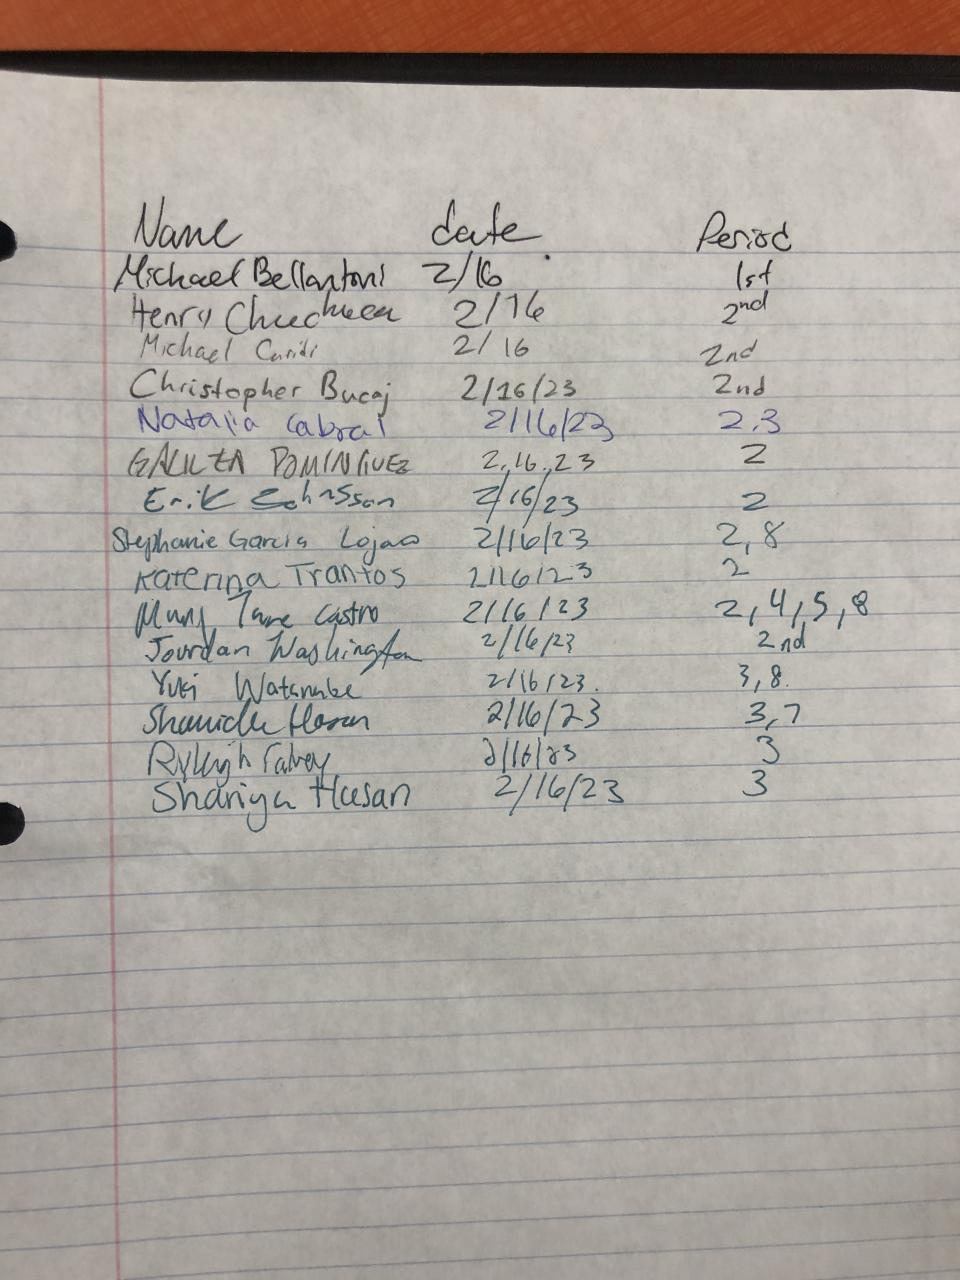 Name date Period
Michael Bellantoni 2/16 1st
Henry 2/16 2nd
Michael 2/16 2nd
Christopher Bucaj 2/16/23 2nd
Natalia Cabral 2/16/23 2,3
GALILEA DOMINGUEZ 2.16.23 2
Erik 2/16/23 2
Stephanie Garcia Lojano 2/16/23 2,8
Katerina Trantos 2/16/23 2
Castro 2/16/23 2,4,5,8
Jourdan Washington 2/16/23 2nd
Yuki Watanabe 2/16/23. 3,8.
2/16/23 3,7
Ryleigh 2/16/23 3
Shariya Hasan 2/16/23 3